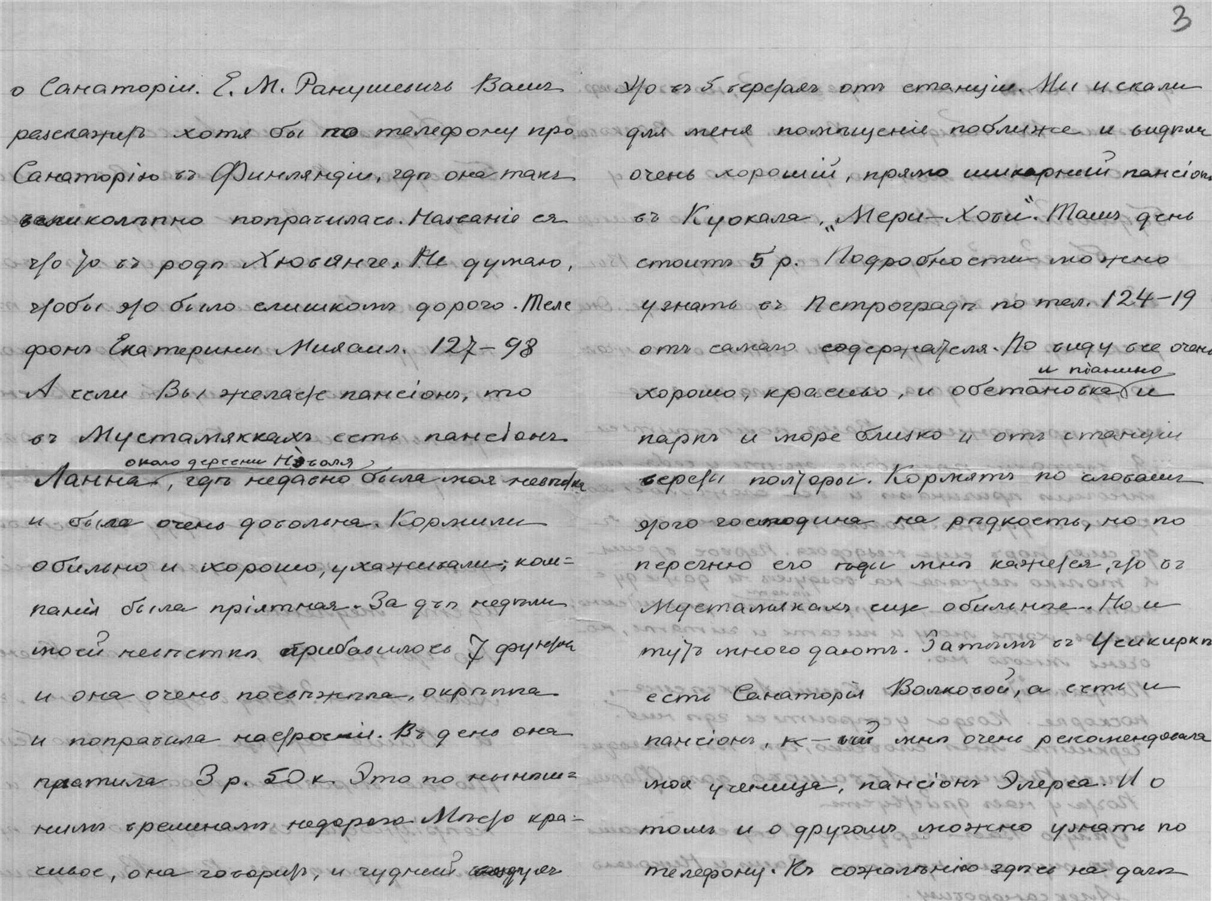 3
о Санаторіи. Е. М. Ранушевичъ Вамъ
разскажетъ хотя бы по телефону про
Санаторію въ Финляндіи, гдѣ она такъ
великолѣпно поправилась. Названіе ея
что то въ родѣ Хювинге. Не думаю,
чтобы это было слишкомъ дорого. Теле
фонъ Екатерины Михаил. 127–98
А если Вы желаете пансіонъ, то
въ Мустамяккахъ есть пансіонъ
около деревни Нэволя
Ланна, гдѣ недавно была моя невѣстка
и была очень довольна. Кормили
обильно и хорошо, ухаживали; ком=
панія была пріятная. За двѣ недѣли
моей невѣсткѣ прибавилось 7 фунтовъ
и она очень посвѣжѣла, окрѣпла
и поправила настроеніе. Въ день она
платила 3 р. 50 к. Это по нынѣш=
нимъ временамъ недорого. Мѣсто кра=
сивое, она говоритъ, и чудный воздухъ
Это въ 5 верстахъ отъ станціи. Мы искали
для меня помѣщеніе поближе и видѣли
очень хорошій, прямо шикарный пансіонъ
въ Куокала, „Мери–Хови". Тамъ день
стоитъ 5 р. Подробности можно
узнать въ Петроградѣ по тел. 124–19
отъ самаго содержателя. По виду все очень
и піанино
хорошо, красиво, и обстановка и
паркъ и море близко и отъ станціи
версты полторы. Кормятъ по словамъ
этого господина на рѣдкость, но по
перечню его ѣды мнѣ кажется, что въ
Мустамякахъ еще обильнѣе. Но и
тутъ много даютъ. Затѣмъ въ Усикиркѣ
есть Санаторія Волковой, а есть и
пансіонъ, к–ый мнѣ очень рекомендовала
моя ученица, пансіонъ Элерса. И о
томъ и о другомъ можно узнать по
телефону. Къ сожалѣнію здѣсь на дачѣ